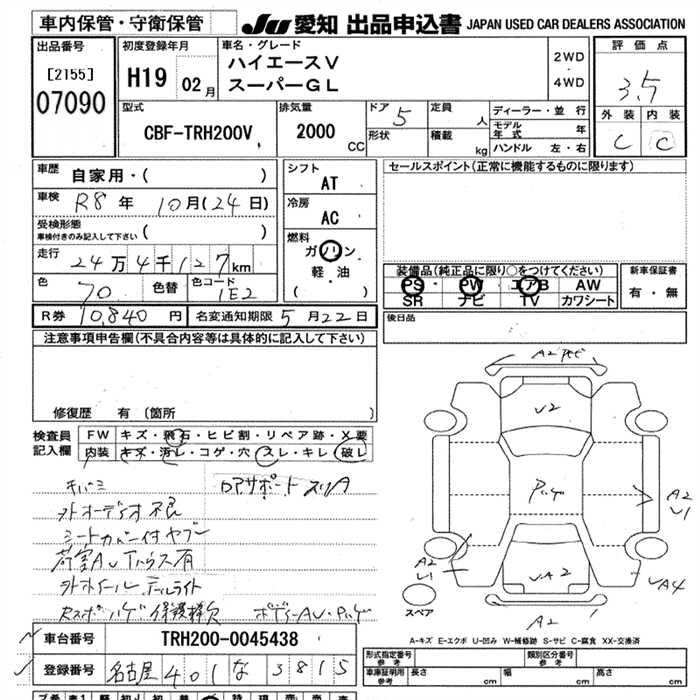 車内保管・守衛保管
JU 愛知 出品申込書 JAPAN USED CAR DEALERS ASSOCIATION
出品番号
[2155]
07090
初度登録年月
H19 02月
車名・グレード
ハイエースV
スーパーGL
2WD
・
4WD
評価点
3.5
外装 内装
C C
型式
CBF-TRH200V
排気量
2000 CC
ドア 5
形状
定員 人
積載 kg
ディーラー・並行
モデル年式 年
ハンドル 左・右
車歴 自家用・( )
車検 R8年 10月(24日)
受検形態
車検付きのみ記入して下さい ( )
走行 24万4千127km
色 70 色替 色コード 1E2
シフト
AT
冷房
AC
燃料
ガソリン
軽・油
( )
セールスポイント(正常に機能するものに限ります)
装備品(純正品に限り○をつけてください)
PS PW エアB AW
SR ナビ TV カワシート
新車保証書
有・無
R券 10,840円 名変通知期限 5月22日
後日品
注意事項申告欄(不具合内容等は具体的に記入して下さい)
修復歴 有(箇所
検査員記入欄
FW キズ・飛石・ヒビ割・リペア跡・X要
内装 キズ・汚レ・コゲ・穴・スレ・キレ・破レ
キバミ
外オーディオ不良
シートカバー付ヤブレ
外ホイール テールライト
A2
U2
A2
U1
A2
U1
UA2
UA4
A2
スペア
A-キズ E-エクボ U-凹み W-補修跡 S-サビ C-腐食 XX-交換済
車台番号 TRH200-0045438
登録番号 名古屋 401 な 3815
形式指定番号
参考
類別区分番号
参考
車庫証明用
参考
長さ cm 幅 cm 高さ cm